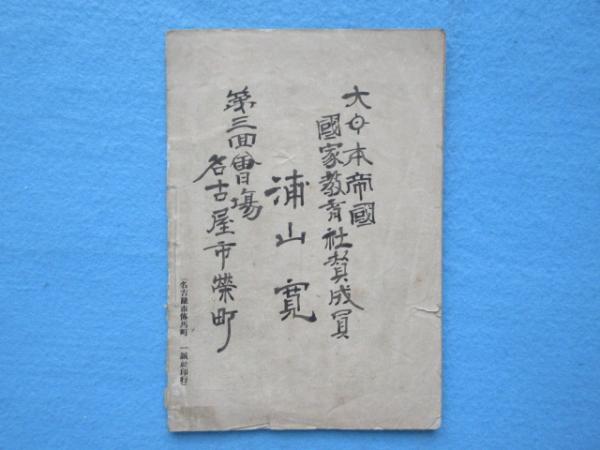 大日本帝國
國家教育社賛成員
浦山寛
第三回會場
名古屋市榮町
名古屋市傳馬町 一誠社印行